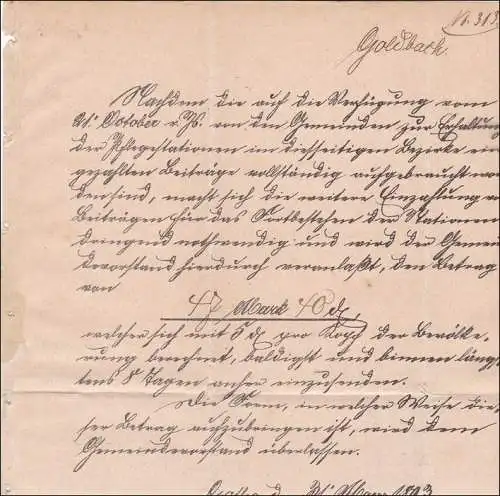 N. 313.
Goldbach.
Nachdem die auf die Verfügung vom
21t. October v. Js. von den Gemeinden zur Erhaltung
der Pflegestationen im diesseitigen Bezirke ein
gezahlten Beiträge vollständig aufgebraucht wor
den sind, macht sich die weitere Einzahlung v
Beiträgen für das Fortbestehen der Stationen
dringend nothwendig und wird der Gemein
devorstand hierdurch veranlaßt, den Betrag
von
47 Mark 40 d,
welcher sich mit 5 d. pro Kopf der Bevölke-
rung berechnet, baldigst und binnen längs
tens 8 Tagen anher einzusenden.
Die Form, in welcher Weise die
ser Betrag aufzubringen ist, wird dem
Gemeindevorstand überlassen.
Gotha d. 31t. März 1893